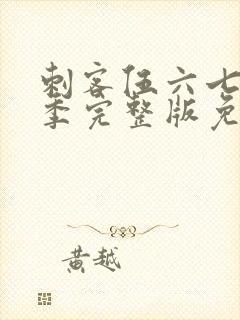 刺客伍六七
季完整版免
黄越